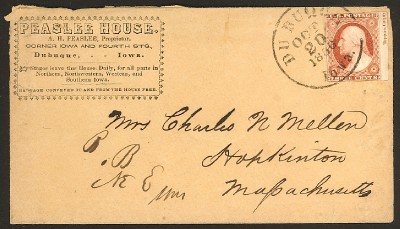 PEASLEE HOUSE.
A. H. PEASLEE, Proprietor.
CORNER IOWA AND FOURTH STS,
Dubuque, - - Iowa.
Stages leave the House Daily, for all parts in
Northern, Northwestern, Western, and
Southern Iowa.
BAGGAGE CONVEYED TO AND FROM THE HOUSE FREE.
DUBUQUE
OCT
20
IOWA
THREE CENTS
Mrs Charles N Mellen
P. B
Hopkinton
N. E
Massachusetts